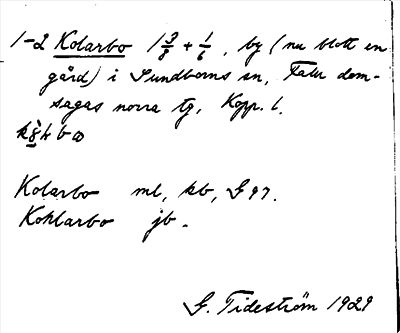 1-2 Kolarbo 1 3/8 + 1/6, by (nu blott en
gård) i Sundborns sn, Falu dom-
sagas norra tg, Kopp. l.

Kolarbo ml, kb, G 97.
Kohlarbo jb.
G. Tideström 1929